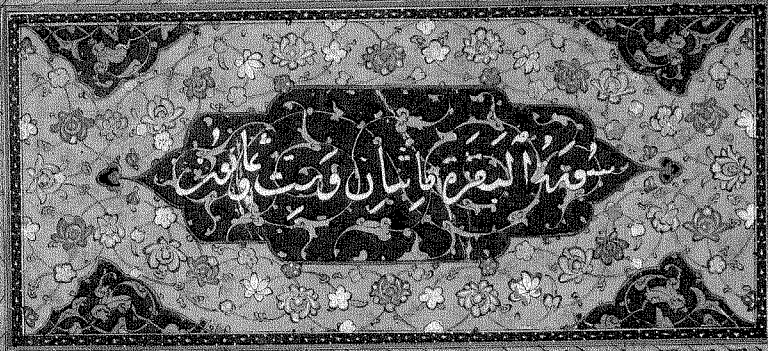 سُورَةُ ٱلبَقَرَة مِائتانِ وَسِتّ وثمانون